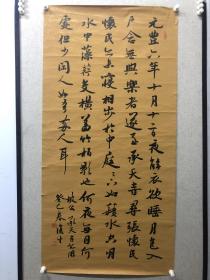 元豐六年十月十二日夜解衣欲睡月色入
戶念無與樂者遂至承天寺尋張懷民
懷民亦未寢相步於中庭〻下如積水空明
水中藻荇交橫蓋竹柏影也何夜無月何
處但少閑人如吾兩人耳
坡公承天
癸巳春